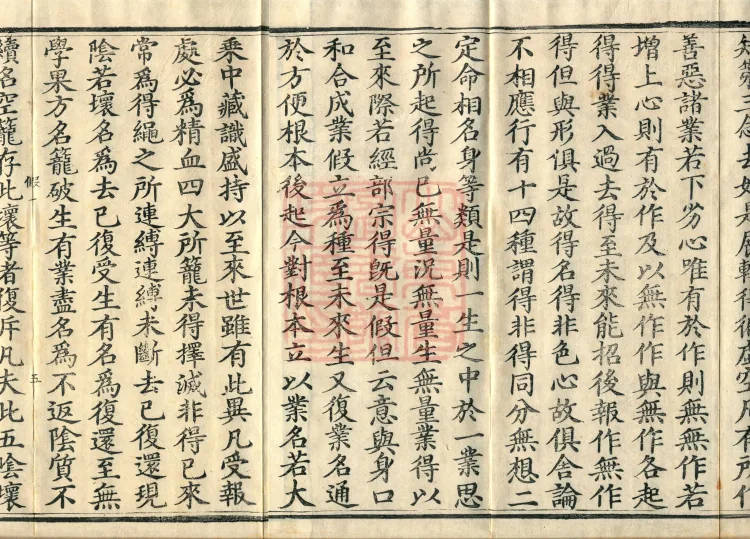 善惡諸業若下劣心唯有於作則無無作若
增上心則有於作及以無作作與無作各起
得得業入過去得至未來能招後報作無作
得但與形俱是故得名得非色心故俱舍論
不相應行有十四種謂得非得同分無想二
定命相名身等類是則一生之中於一業思
之所起得尚已無量況無量生無量業得以
至來際若經部宗得旣是假但云意與身口
和合成業假立爲種至未來生又復業名通
於方便根本後起今對根本立以業名若大
乘中藏識盛持以至來世雖有此異凡受報
處必爲精血四大所籠未得擇滅非得已來
常爲得繩之所連縛連縛未斷去已復還現
陰若壞名爲去已復受生有名爲復還至無
學果方名籠破生有業盡名爲不返陰質不
假一
五
續名空籠存此壞等者復斥凡夫此五陰壞